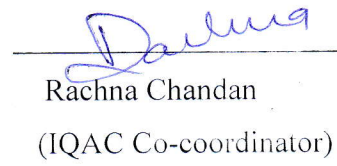 Rachna Chandan
(IQAC Co-coordinator)